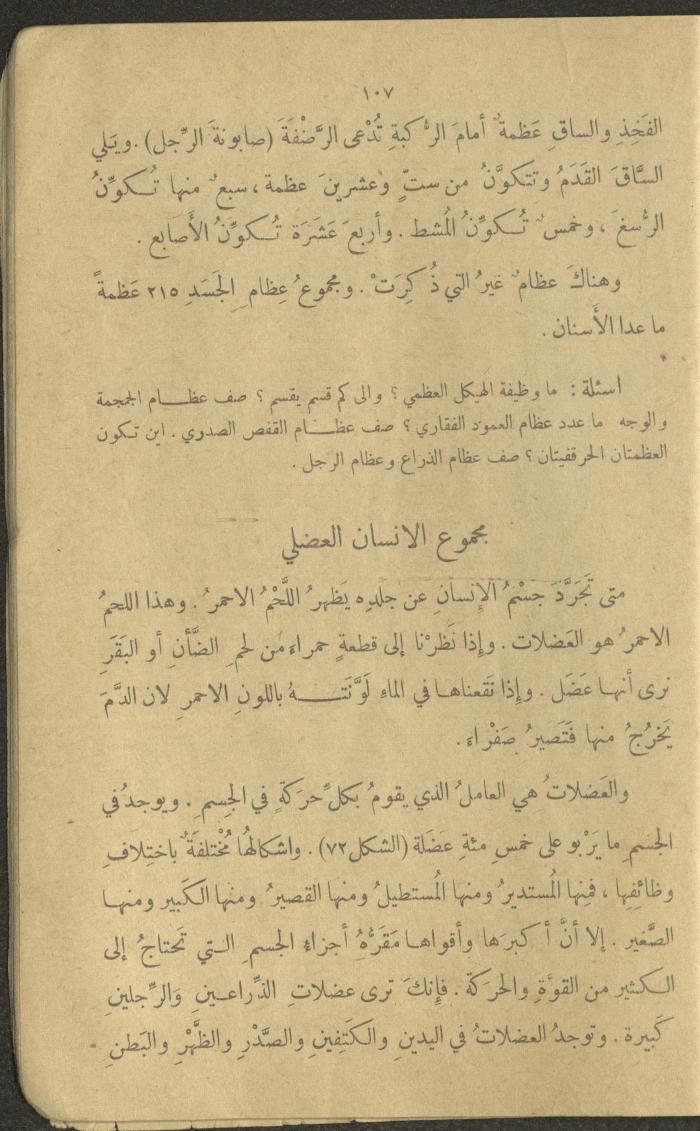 ١٠٧
الفَخِذِ والساقِ عَظمةٌ أمامَ الرُّكبةِ تُدْعى الرَّضْفَةَ (صابونةَ الرِّجل). ويَلي
السَّاقَ القَدَمُ وتتكوَّنُ من ستٍّ وعشرينَ عظمة، سبعٌ منها تُكوِّنُ
الرُّسغَ، وخمسٌ تُكوِّنُ المُشط. وأربعَ عَشَرَة تُكوِّنُ الأَصابع.
وهناكَ عظامٌ غيرُ التي ذُكِرَتْ. ومجموعُ عِظامِ الجَسَدِ ٢١٥ عَظمةً
ما عدا الأَسنان.
اسئلة: ما وظيفة الهيكل العظمي؟ والى كم قسم يقسم؟ صف عظام الجمجمة
والوجه ما عدد عظام العمود الفقاري؟ صف عظام القفص الصدري. اين تكون
العظمتان الحرقفيتان؟ صف عظام الذراع وعظام الرجل.
مجموع الانسان العضلي
متى تَجَرَّدَ جسْمُ الإِنسانِ عن جلدِه يَظهرُ اللَّحْمُ الاحمرُ. وهذا اللحمُ
الاحمرُ هو العَضَلات. وإِذا نَظَرْنا إلى قطعةٍ حمراءَ من لحمِ الضَّأنِ أو البَقَرِ
نرى أنها عَضَل. وإِذا نَقَعناها في الماءِ لَوَّنَتهُ باللونِ الاحمرِ لان الدَّمَ
يَخرُجُ منها فَتَصيرُ صَفْراء.
والعَضَلاتُ هي العاملُ الذي يقومُ بكلِّ حرَكةٍ في الجِسم. ويوجدُ في
الجسمِ ما يَرْبو على خمسِ مئةِ عضَلة (الشكل ٧٢). واشكالهُا مُخْتلفَةٌ باختِلافِ
وظائِفِها، فمِنها المُستديرُ ومنها المُستطيلُ ومنها القصيرُ ومنها الكَبير ومنها
الصَّغير. إلا أنَّ أكبرَها وأقواها مَقَرُّهُ أجزاءِ الجسمِ التي تَحتاجُ إلى
الكثيرِ من القوَّةِ والحرَكَة. فإِنكَ ترى عضلاتِ الذِّراعَينِ وَالرِّجلينِ
كَبيرة. وتوجدُ العضلاتُ في اليدينِ والكَتِفينِ والصَّدْرِ والظَّهْرِ والبَطنِ